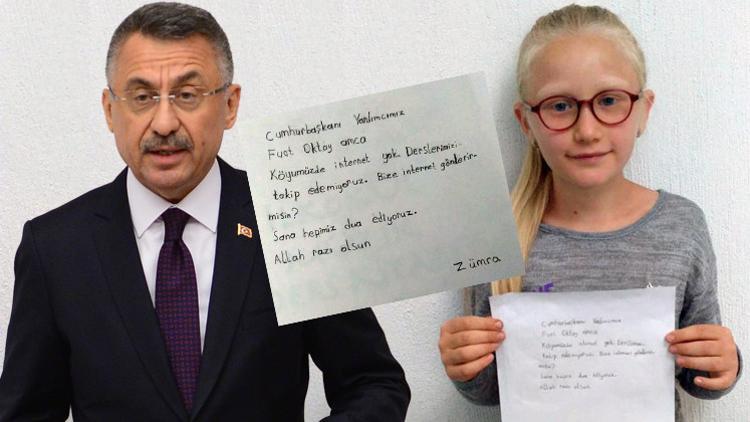 Cumhurbaşkanı Yardımcımız
Fuat Oktay amca
Köyümüzde internet yok. Derslerimizi
takip edemiyoruz. Bize internet gönderir-
misin?
Sana hepimiz dua ediyoruz.
Allah razı olsun
Zümra
Cumhurbaşkanı Yardımcımız
Fuat Oktay amca
Köyümüzde internet yok
takip edemiyoruz Bize internet
misin?
Sana hepimiz dua ediyoruz.
Allah razı olsun